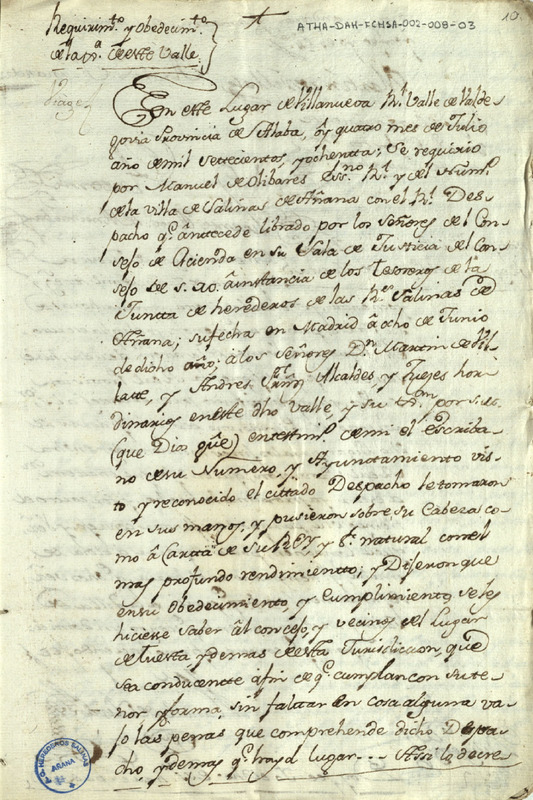 ATHA-DAH-FCHSA-002-008-03
10
Requirim.to y Obedecim.to
de la Jª de este Valle
En este Lugar de Villanueva R.l Valle de Valde-
govia Provincia de Alaba, oy quatro mes de Julio
año de mil settecientos, y ochentta; Se requirio
por Manuel de Olibares ess.no R.l y del Num.o
de la villa de Salinas de Añana con el R.l Des-
pacho q.e antecede librado por los señores del Con-
sejo de Acienda en su Sala de Justicia del Con-
sejo de S. A. â instancia de los tesoreros de la
Juntta de herederos de las R.s Salinas de
Añana; su fecha en Madrid â ocho de Junio
de dicho año; â los señores D.n Martin de Vil-
y Andres Alcaldes y Juezes hor-
dinarios en este dho Valle, y su por S. M.
(que Dios gûe) en testim.o de mi el Escriba-
no de su Numero, y Ayuntamiento vis-
to y reconocido el cittado Despacho le tomaron
en sus manos, y pusieron sobre su Cabeza co-
mo â Cartta de su REY, y S.r natural con el
mas profundo rendimiento; y Dijeron que
en su Obedecimiento, y Cumplimiento se les
hiciese saber âl concejo, y vecinos del Lugar
de tuesta y demas de esta Jurisdiccion, que
sea conducente â fin de q.e cumplan con su te-
nor y forma, sin faltar en cosa alguna va-
jo las penas que comprehende dicho Despa-
cho, y demas q.e haya lugar --- Assi lo decre
HEREDEROS SALINAS
AÑANA